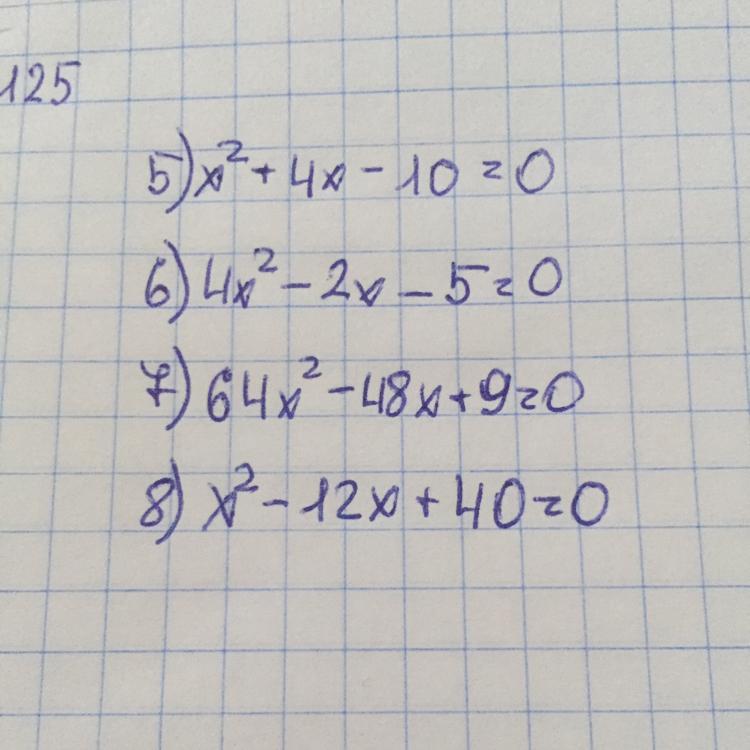 125
5) x² + 4x - 10 = 0
6) 4x² - 2x - 5 = 0
7) 64x² - 48x + 9 = 0
8) x² - 12x + 40 = 0